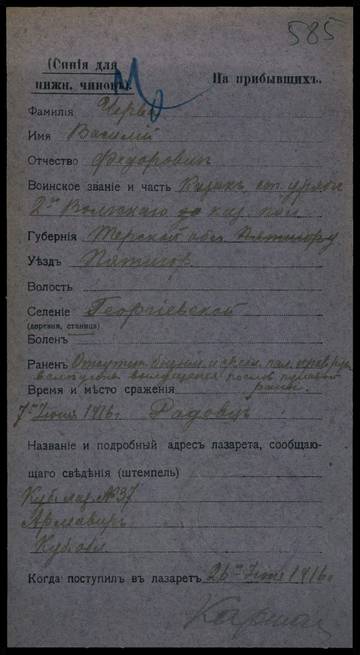 585
(Синія для
нижн. чиновъ).
На прибывшихъ.
Фамилія
Имя Василій
Отчество Федоровичъ
Воинское званіе и часть Казакъ ст. уряд
2го Волжскаго каз. пол
Губернія Терской обл
Уѣздъ Пятигор
Волость
Селеніе Георгіевской
(деревня, станица)
Боленъ
Раненъ
Время и мѣсто сраженія
7го Іюня 1916г Радовцъ
Названіе и подробный адресъ лазарета, сообщаю-
щаго свѣдѣнія (штемпель)
Куб. лаз. № 37
Армавиръ
Куб обл
Когда поступилъ въ лазаретъ 26го Іюня 1916г